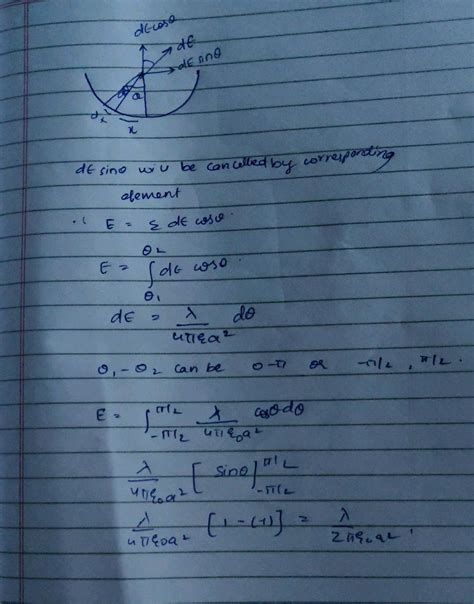 dE cosθ
dE
dE sinθ
dθ
a
dx
x
dE sinθ will be cancelled by corresponding
element
∴ E = Σ dE cosθ.
E = ∫θ1^θ2 dE cosθ.
dE = λ/4πε0a² dθ
θ1 - θ2 can be 0-π or -π/2, π/2.
E = ∫-π/2^π/2 λ/4πε0a² cosθdθ
λ/4πε0a² [sinθ]-π/2^π/2
λ/4πε0a² [1-(-1)] = λ/2πε0a².